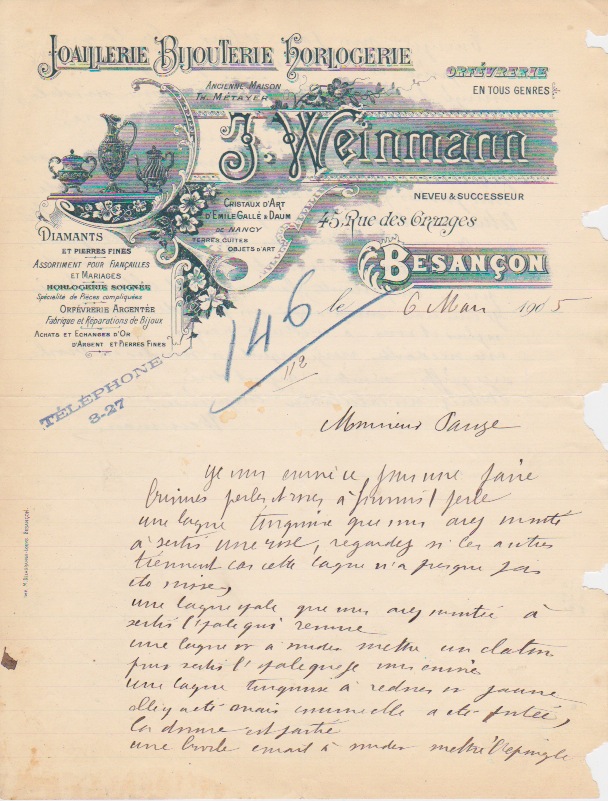 JOAILLERIE BIJOUTERIE HORLOGERIE
ORFÈVRERIE
EN TOUS GENRES
ANCIENNE MAISON
TH. MÉTAYER
J. Weinmann
NEVEU & SUCCESSEUR
CRISTAUX D'ART
D'EMILE GALLÉ & DAUM
DE NANCY
TERRES CUITES
OBJETS D'ART
45, Rue des Granges
BESANÇON
DIAMANTS
ET PIERRES FINES
ASSORTIMENT POUR FIANÇAILLES
ET MARIAGES
HORLOGERIE SOIGNÉE
Spécialité de Pièces compliquées
ORFÈVRERIE ARGENTÉE
Fabrique et Réparations de Bijoux
ACHATS ET ECHANGES D'OR
D'ARGENT ET PIERRES FINES
le 6 Mars 1905
146
112
TÉLÉPHONE
3-27
Monsieur
Je vous envoie ce jour une paire
perles roses à 1 perle
une bague turquoise que vous avez monté
à sertis une rose, regardez si les autres
tiennent car cette bague n'a presque pas
été mise,
une bague opale que vous avez montée à
sertis l'opale qui remue
une bague or à souder mettre un chaton
pour sertis l'opale que je vous envoie
une bague turquoise à or jaune
elle a été mais a été
la est partie
une broche émail à souder mettre l'épingle